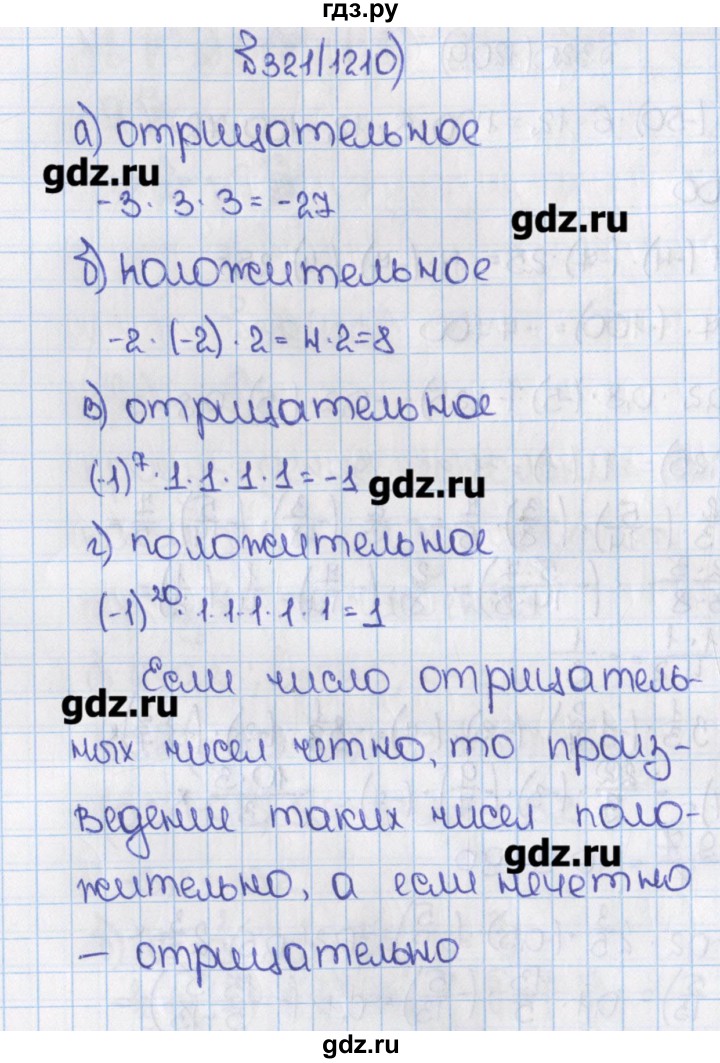 гдз.ру
№321(1210)
а) отрицательное
gdz.ru
-3· 3· 3 = -27
gdz.ru
б) положительное
-2 · (-2) · 2 = 4·2=8
в) отрицательное
(-1)⁷·1·1·1·1=-1
gdz.ru
г) положительное
(-1)²⁰·1·1·1·1·1=1
Если число отрицатель-
gdz.ru
ных чисел четно, то произ-
ведение таких чисел поло-
gdz.ru
жительно, а если нечетно
— отрицательно
gdz.ru